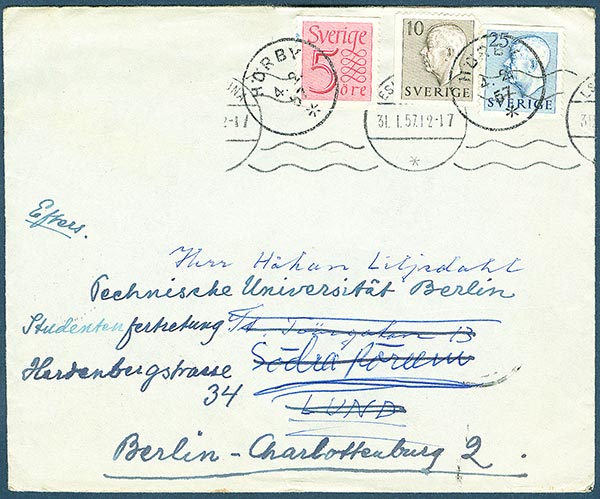 Sverige
5
öre
10
SVERIGE
25
SVERIGE
HÖRBY
4. 2. 57
HÖRBY
4. 2. 57
31. 1. 57. 12-17
2-17
Efters.
Herr Håkan Liljedahl
Technische Universität Berlin
Studentenfertretung
Södra
Hardenbergstrasse
34
LUND
Berlin-Charlottenburg 2.